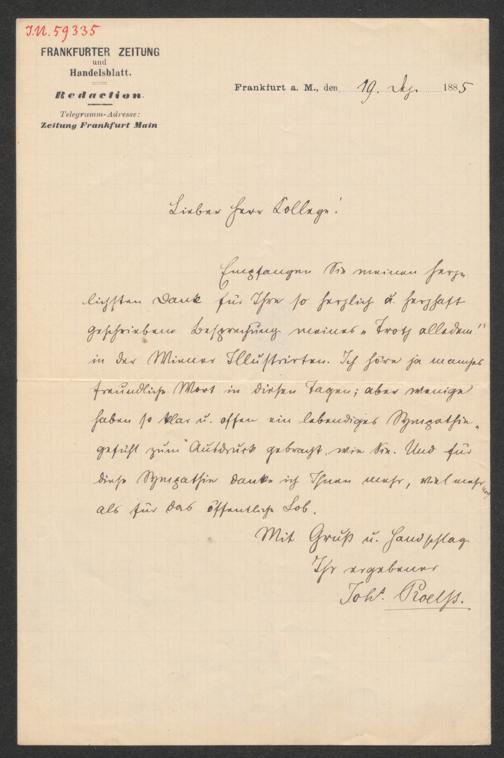 I.N. 59335
FRANKFURTER ZEITUNG
und
Handelsblatt.
Redaction.
Telegramm-Adresse:
Zeitung Frankfurt Main
Frankfurt a. M., den 19. Dez. 1885
Lieber Herr College!
Empfangen Sie meinen herz-
lichsten Dank für Ihre so herzlich u. herzhaft
geschriebene Besprechung meines „Trotz alledem"
in der Wiener Illustrirten. Ich höre ja manches
freundliche Wort in diesen Tagen; aber wenige
haben so klar u. offen ein lebendiges Sympathie-
gefühl zum Ausdruck gebracht wie Sie. Und für
diese Sympathie danke ich Ihnen mehr, viel mehr
als für das öffentliche Lob.
Mit Gruß u. Handschlag
Ihr ergebener
Johs. Proelß.